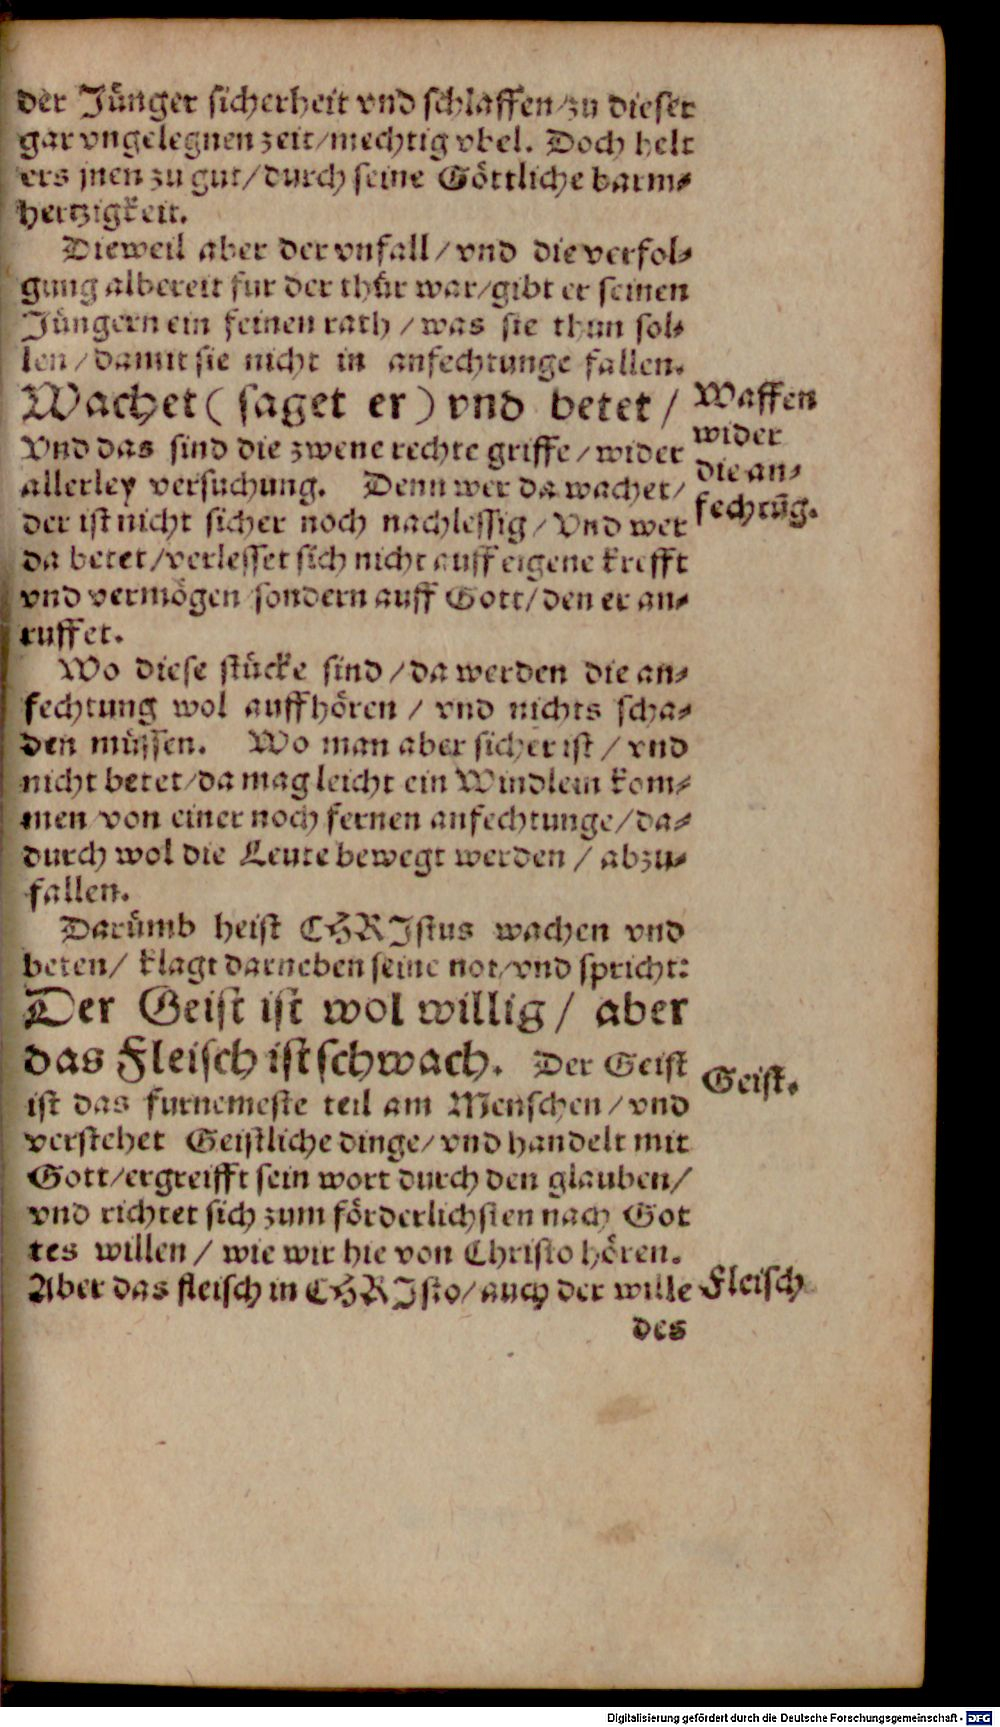 der Jünger sicherheit vnd schlaffen/zu dieser
gar vngelegnen zeit/mechtig vbel. Doch helt
ers jnen zu gut/durch seine Göttliche barm-
hertzigkeit.
Dieweil aber der vnfall/vnd die verfol-
gung albereit fur der thür war/gibt er seinen
Jüngern ein feinen rath/was sie thun sol-
len/damit sie nicht in anfechtunge fallen.
Wachet (saget er) vnd betet/
Vnd das sind die zwene rechte griffe/wider
allerley versuchung. Denn wer da wachet/
der ist nicht sicher noch nachlessig/Vnd wer
da betet/verlesset sich nicht auff eigene krefft
vnd vermögen/sondern auff Gott/den er an-
ruffet.
Waffen
wider
die an-
fechtūg.
Wo diese stücke sind/da werden die an-
fechtung wol auffhören/vnd nichts scha-
den müssen. Wo man aber sicher ist/vnd
nicht betet/da mag leicht ein Windlein kom-
men/von einer noch fernen anfechtunge/da-
durch wol die Leute bewegt werden/abzu-
fallen.
Darümb heist CHRIstus wachen vnd
beten/klagt darneben seine not/vnd spricht:
Der Geist ist wol willig/aber
das Fleisch ist schwach. Der Geist
ist das furnemeste teil am Menschen/vnd
verstehet Geistliche dinge/vnd handelt mit
Gott/ergreifft sein wort durch den glauben/
vnd richtet sich zum förderlichsten nach Got
tes willen/wie wir hie von Christo hören.
Aber das fleisch in CHRIsto/auch der wille
Geist.
Fleisch
des
Digitalisierung gefördert durch die Deutsche Forschungsgemeinschaft - DFG